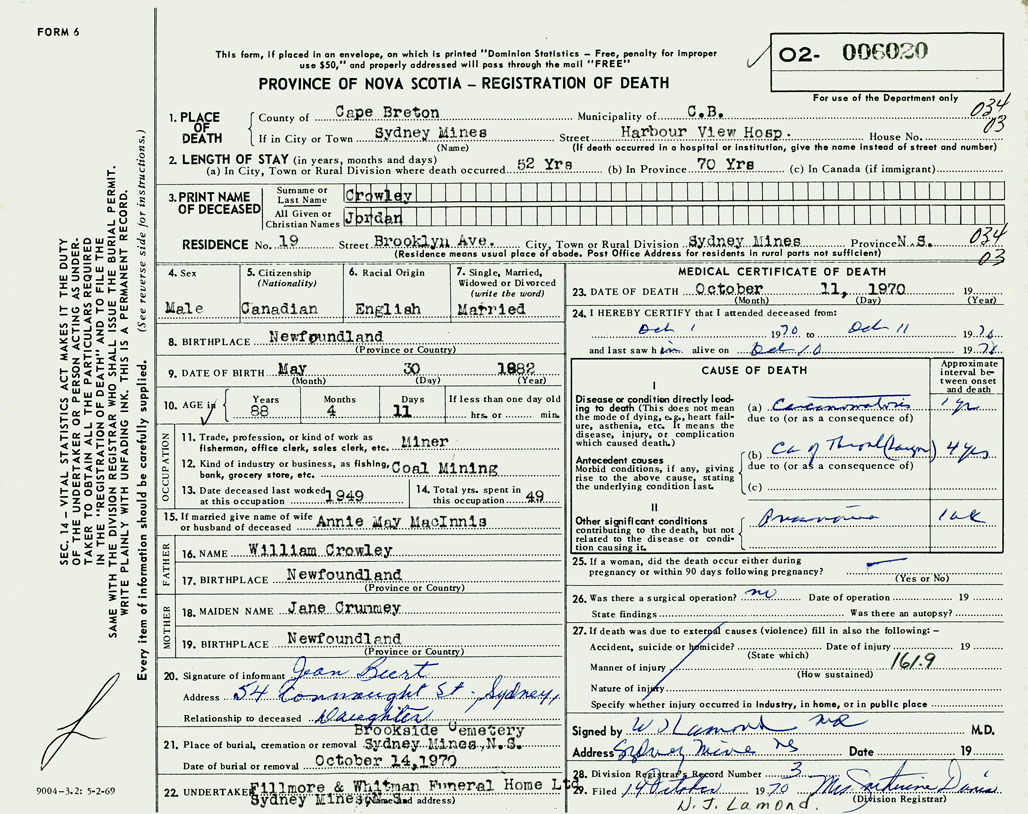 FORM 6
This form, if placed in an envelope, on which is printed "Dominion Statistics – Free, penalty for improper
use $50," and properly addressed will pass through the mail "FREE"
O2- 006020
PROVINCE OF NOVA SCOTIA – REGISTRATION OF DEATH
For use of the Department only
034
03
1. PLACE OF DEATH
County of Cape Breton Municipality of C.B.
If in City or Town Sydney Mines Street Harbour View Hosp. House No.
(Name) (If death occurred in a hospital or institution, give the name instead of street and number)
2. LENGTH OF STAY (in years, months and days)
(a) In City, Town or Rural Division where death occurred 52 Yrs (b) In Province 70 Yrs (c) In Canada (if immigrant)
3. PRINT NAME OF DECEASED
Surname or Last Name Crowley
All Given or Christian Names Jordan
RESIDENCE No. 19 Street Brooklyn Ave. City, Town or Rural Division Sydney Mines Province N.S.
034
03
(Residence means usual place of abode. Post Office Address for residents in rural parts not sufficient)
4. Sex
Male
5. Citizenship
(Nationality)
Canadian
6. Racial Origin
English
7. Single, Married,
Widowed or Divorced
(write the word)
Married
8. BIRTHPLACE Newfoundland
(Province or Country)
9. DATE OF BIRTH May 30 1882
(Month) (Day) (Year)
10. AGE in
Years Months Days If less than one day old
88 4 11 hrs. or min.
OCCUPATION
11. Trade, profession, or kind of work as
fisherman, office clerk, sales clerk, etc. Miner
12. Kind of industry or business, as fishing,
bank, grocery store, etc. Coal Mining
13. Date deceased last worked
at this occupation 1949
14. Total yrs. spent in
this occupation 49
15. If married give name of wife
or husband of deceased Annie May MacInnis
FATHER
16. NAME William Crowley
17. BIRTHPLACE Newfoundland
(Province or Country)
MOTHER
18. MAIDEN NAME Jane Crummey
19. BIRTHPLACE Newfoundland
(Province or Country)
20. Signature of informant Jean
Address 54 Connaught St. Sydney,
Relationship to deceased Daughter
Brookside Cemetery
21. Place of burial, cremation or removal Sydney Mines, N.S.
Date of burial or removal October 14, 1970
22. UNDERTAKER Fillmore & Whitman Funeral Home Ltd.
Sydney Mines,
(Name and address)
MEDICAL CERTIFICATE OF DEATH
23. DATE OF DEATH October 11, 1970 19
(Month) (Day) (Year)
24. I HEREBY CERTIFY that I attended deceased from:
Oct 1 1970 to Oct 11 1970
and last saw him alive on Oct 10 1970
CAUSE OF DEATH
Approximate
interval be-
tween onset
and death
I
Disease or condition directly lead-
ing to death (This does not mean
the mode of dying, e.g., heart fail-
ure, asthenia, etc. It means the
disease, injury, or complication
which caused death.)
(a) Carcinomatosis 1 yr
due to (or as a consequence of)
(b) Ca of Throat (Larynx) 4 yrs
due to (or as a consequence of)
Antecedent causes
Morbid conditions, if any, giving
rise to the above cause, stating
the underlying condition last.
(c)
II
Other significant conditions
contributing to the death, but not
related to the disease or condi-
tion causing it.
1 wk
25. If a woman, did the death occur either during
pregnancy or within 90 days following pregnancy?
(Yes or No)
26. Was there a surgical operation? no Date of operation 19
State findings Was there an autopsy?
27. If death was due to external causes (violence) fill in also the following: –
Accident, suicide or homicide? Date of injury 19
(State which)
161.9
Manner of injury
(How sustained)
Nature of injury
Specify whether injury occurred in industry, in home, or in public place
Signed by W J Lamond MD M.D.
Address Sydney Mines NS Date 19
28. Division Registrar's Record Number 3
29. Filed 14 October 1970 Mrs. Davis
(Division Registrar)
N. J. Lamond.
SEC. 14 – VITAL STATISTICS ACT MAKES IT THE DUTY
OF THE UNDERTAKER OR PERSON ACTING AS UNDER-
TAKER TO OBTAIN ALL THE PARTICULARS REQUIRED
IN THE "REGISTRATION OF DEATH" AND TO FILE THE
SAME WITH THE DIVISION REGISTRAR WHO SHALL ISSUE THE BURIAL PERMIT.
WRITE PLAINLY WITH UNFADING INK. THIS IS A PERMANENT RECORD.
Every item of information should be carefully supplied. (See reverse side for instructions.)
9004-3.2: 5-2-69